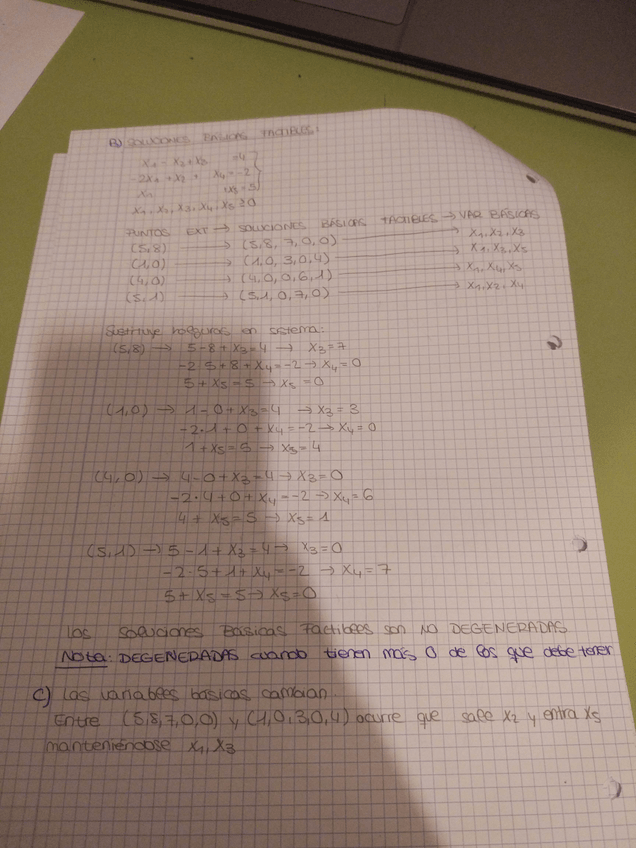 B) SOLUCIONES BÁSICAS FACTIBLES:
x₁ - x₂ + x₃ = 4
-2x₁ + x₂ + x₄ = -2
x₁ x₅ = 5
x₁, x₂, x₃, x₄, x₅ ≥ 0
PUNTOS EXT → SOLUCIONES BÁSICAS FACTIBLES → VAR BÁSICAS
(5,8) → (5,8,7,0,0) → x₁, x₂, x₃
(1,0) → (1,0,3,0,4) → x₁, x₃, x₅
(4,0) → (4,0,0,6,1) → x₁, x₄, x₅
(5,1) → (5,1,0,7,0) → x₁, x₂, x₄
Sustituye en sistema:
(5,8) → 5-8+x₃=4 → x₃=7
-2·5+8+x₄=-2 → x₄=0
5+x₅=5 → x₅=0
(1,0) → 1-0+x₃=4 → x₃=3
-2·1+0+x₄=-2 → x₄=0
1+x₅=5 → x₅=4
(4,0) → 4-0+x₃=4 → x₃=0
-2·4+0+x₄=-2 → x₄=6
4+x₅=5 → x₅=1
(5,1) → 5-1+x₃=4 → x₃=0
-2·5+1+x₄=-2 → x₄=7
5+x₅=5 → x₅=0
Las soluciones Básicas Factibles son NO DEGENERADAS
Nota: DEGENERADAS cuando tienen más 0 de los que debe tener
C) Las variables básicas cambian.
Entre (5,8,7,0,0) y (1,0,3,0,4) ocurre que sale x₂ y entra x₅
manteniéndose x₁, x₃